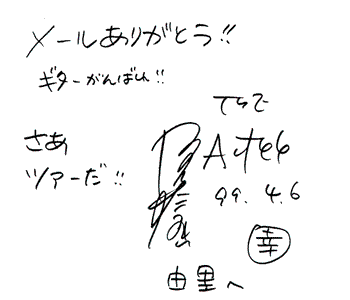 メールありがとう!!
ギターがんばれ!!
さあ
ツアーだ!!
99. 4. 6
幸
由里へ